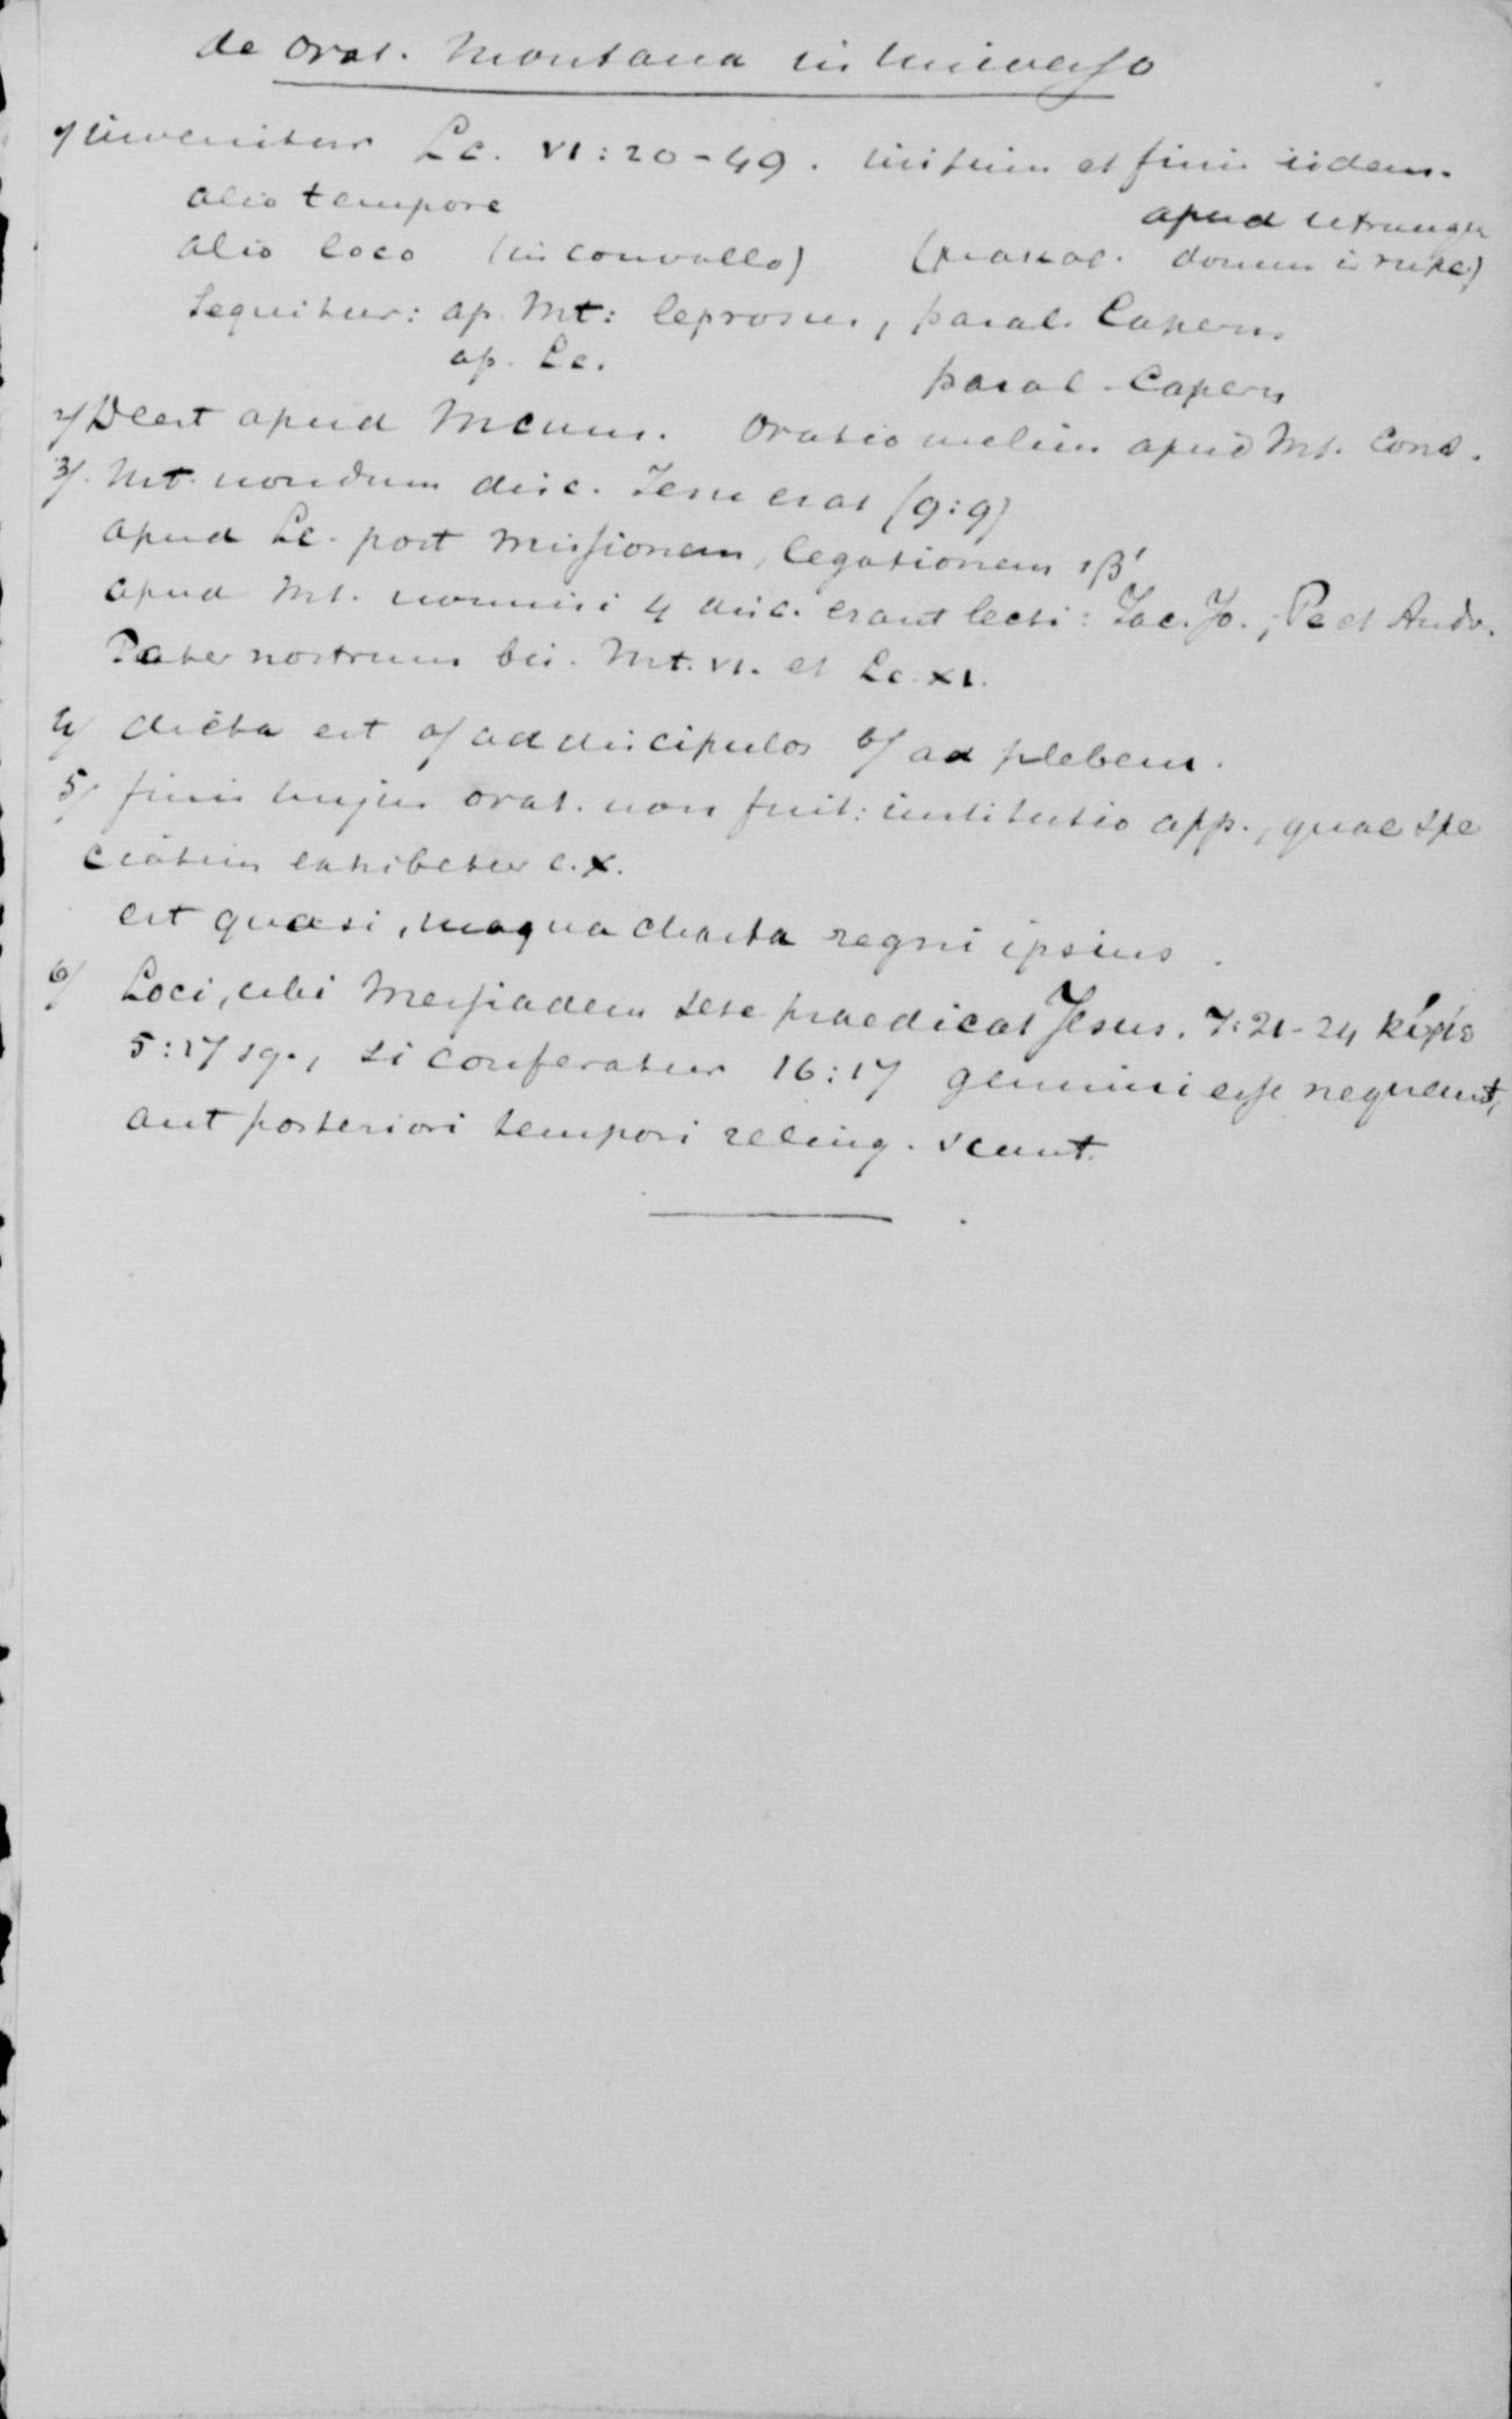 de orat. montana in universo
1/ invenitur Lc. VI : 20 - 49 . initium et finis iidem.
alio tempore
apud utrumque
alio loco (in convalle) (parab. domus in rupe)
Sequitur : ap. Mt : leprosus, paral. Capern.
ap. Lc. paral. Capern
2/ Deest apud Mcum. Oratio melius apud Mt. cons.
3/. Mt. nondum disc. Jesu erat (9:9)
apud Lc. post missionem, legationem ιβ'
apud Mt. nonnisi 4 disc. erant lecti : Jac. Jo., Pe et Andr.
Pater nostrum bis. Mt. VI. et Lc. XI.
4/ dicta est a/ ad discipulos b/ ad plebem.
5/ finis hujus orat. non fuit : institutio app., quae spe
ciatim exhibetur c. X.
est quasi, magna charta regni ipsius .
6/ Loci, ubi Messiadem sese praedicat Jesus. 7:21-24 κύριε
5:17 sq., si conferatur 16:17 genuini esse nequeunt,
aut posteriori tempori relinq. sunt.